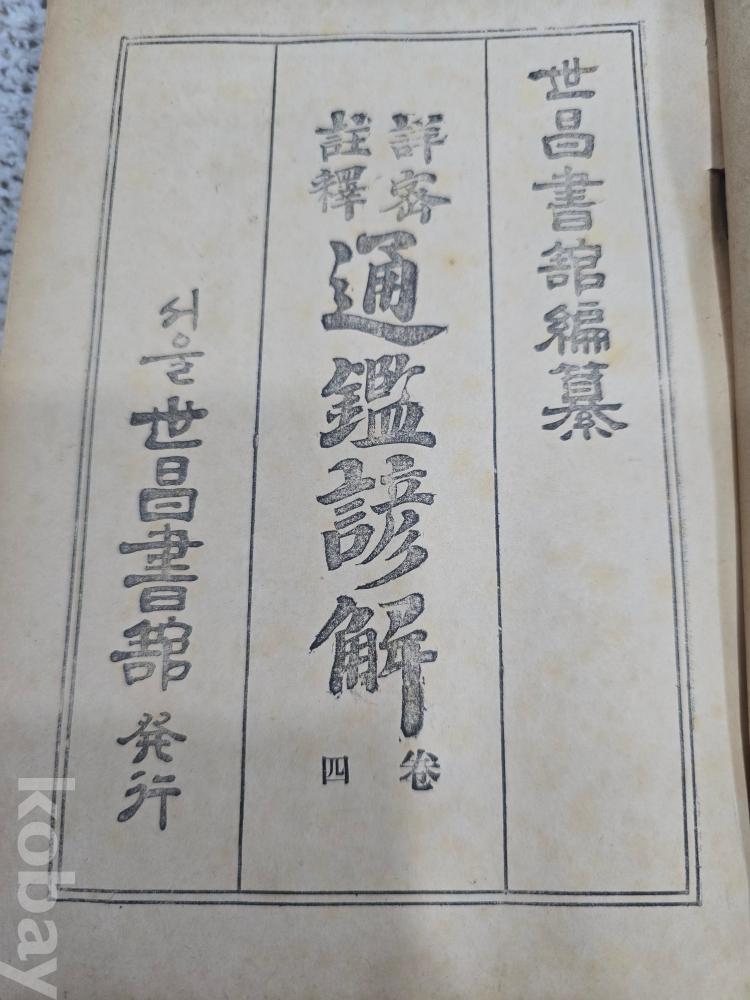 世昌書館編纂
詳密
註釋
通鑑諺解
卷四
서울 世昌書館 発行
kobay